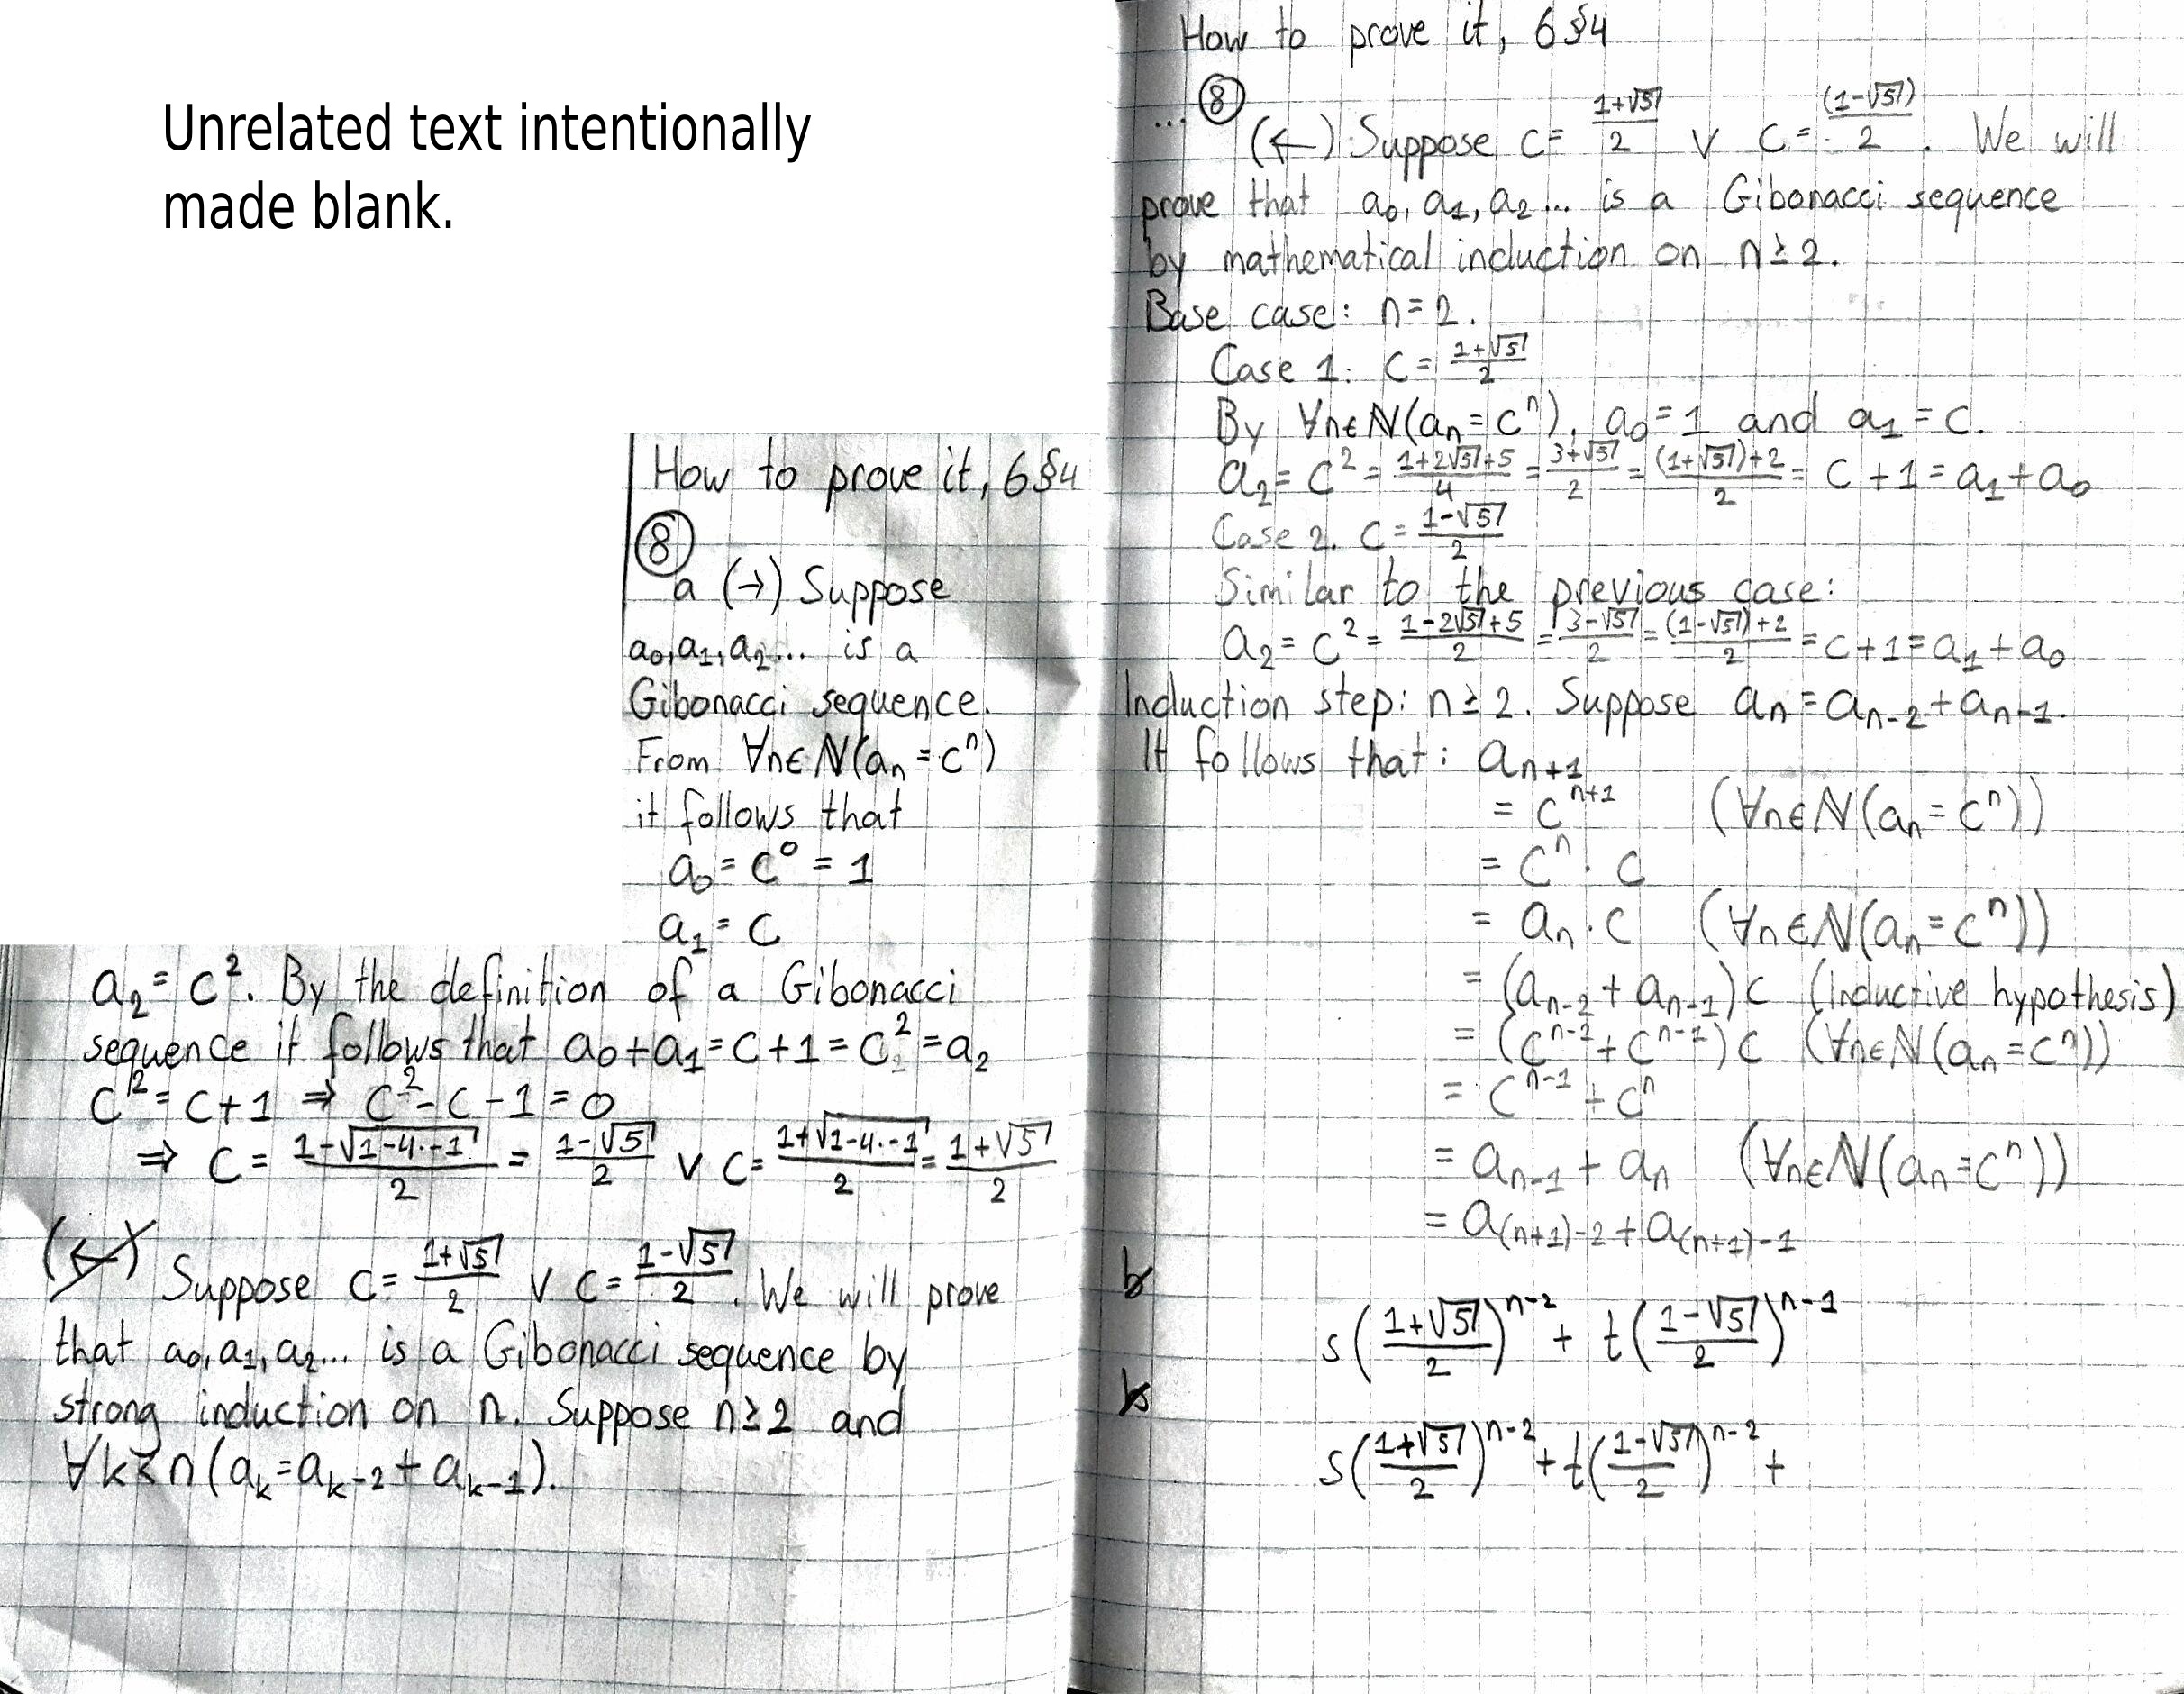 Unrelated text intentionally
made blank.
How to prove it, 6§4
⑧
a (→) Suppose
a₀,a₁,a₂... is a
Gibonacci sequence.
From ∀n∈ℕ(aₙ=cⁿ)
it follows that
a₀=c⁰=1
a₁=c
a₂=c². By the definition of a Gibonacci
sequence it follows that a₀+a₁=c+1=c²=a₂
c²=c+1 ⇒ c²-c-1=0
⇒ c = (1-√(1-4·-1))/2 = (1-√5)/2 ∨ c = (1+√(1-4·-1))/2 = (1+√5)/2
(←) Suppose c = (1+√5)/2 ∨ c = (1-√5)/2. We will prove
that a₀,a₁,a₂... is a Gibonacci sequence by
strong induction on n. Suppose n≥2 and
∀k<n(aₖ=aₖ₋₂+aₖ₋₁).
How to prove it, 6§4
... ⑧
(←) Suppose c = (1+√5)/2 ∨ c = (1-√5)/2. We will
prove that a₀,a₁,a₂... is a Gibonacci sequence
by mathematical induction on n≥2.
Base case: n=2.
Case 1. c = (1+√5)/2
By ∀n∈ℕ(aₙ=cⁿ), a₀=1 and a₁=c.
a₂=c² = (1+2√5+5)/4 = (3+√5)/2 = ((1+√5)+2)/2 = c+1=a₁+a₀
Case 2. c = (1-√5)/2
Similar to the previous case:
a₂=c² = (1-2√5+5)/2 = (3-√5)/2 = ((1-√5)+2)/2 = c+1=a₁+a₀
Induction step: n≥2. Suppose aₙ=aₙ₋₂+aₙ₋₁.
It follows that: aₙ₊₁
= cⁿ⁺¹ (∀n∈ℕ(aₙ=cⁿ))
= cⁿ·c
= aₙ·c (∀n∈ℕ(aₙ=cⁿ))
= (aₙ₋₂+aₙ₋₁)c (Inductive hypothesis)
= (cⁿ⁻²+cⁿ⁻¹)c (∀n∈ℕ(aₙ=cⁿ))
= cⁿ⁻¹+cⁿ
= aₙ₋₁+aₙ (∀n∈ℕ(aₙ=cⁿ))
= a₍ₙ₊₁₎₋₂+a₍ₙ₊₁₎₋₁
b
s((1+√5)/2)ⁿ⁻² + t((1-√5)/2)ⁿ⁻¹
b
s((1+√5)/2)ⁿ⁻² + t((1-√5)/2)ⁿ⁻² +